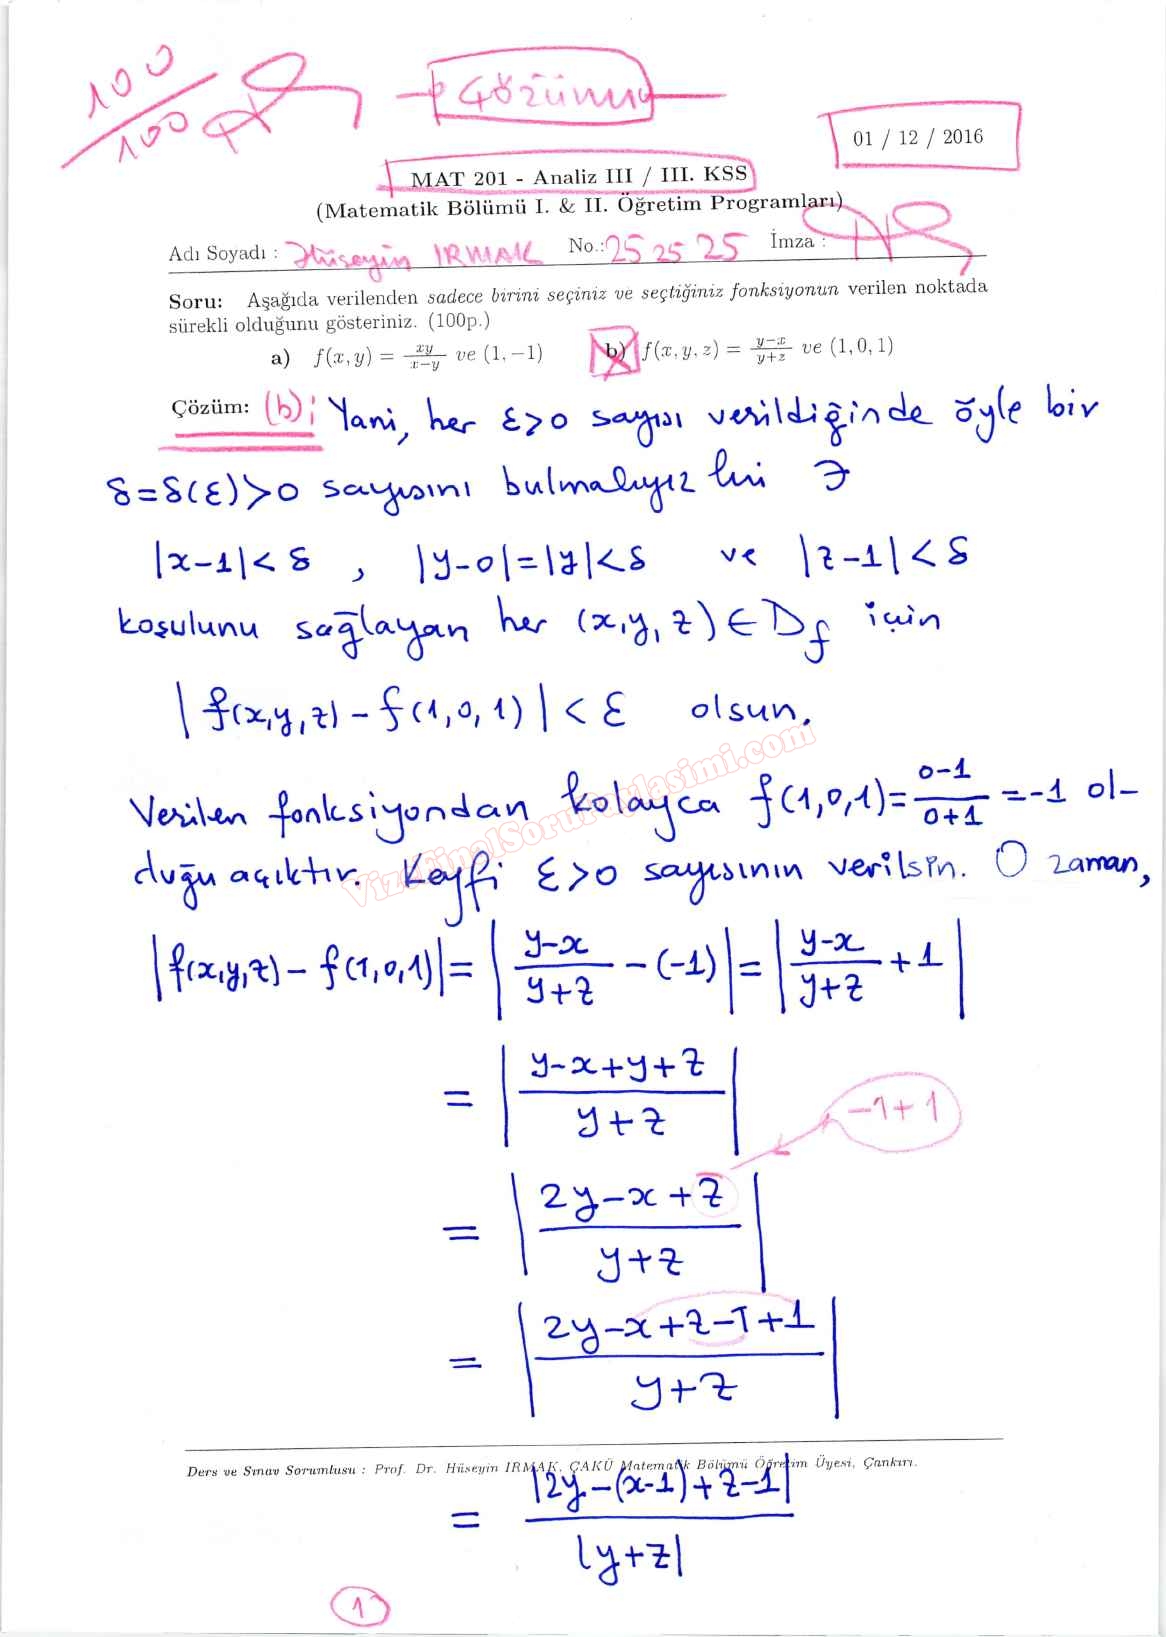 100/100
Çözümü
01 / 12 / 2016
MAT 201 - Analiz III / III. KSS
(Matematik Bölümü I. & II. Öğretim Programları)
Adı Soyadı : Hüseyin IRMAK No.: 25 25 25 İmza :
Soru: Aşağıda verilenden sadece birini seçiniz ve seçtiğiniz fonksiyonun verilen noktada
sürekli olduğunu gösteriniz. (100p.)
a) f(x, y) = xy/(x−y) ve (1, −1) b) f(x, y, z) = (y−x)/(y+z) ve (1, 0, 1)
Çözüm: (b); Yani, her ε>0 sayısı verildiğinde öyle bir
δ=δ(ε)>0 sayısını bulmalıyız ki ∋
|x-1|<δ , |y-0|=|y|<δ ve |z-1|<δ
koşulunu sağlayan her (x,y,z)∈D_f için
|f(x,y,z)-f(1,0,1)|<ε olsun.
Verilen fonksiyondan kolayca f(1,0,1)=(0-1)/(0+1)=-1 ol-
duğu açıktır. Keyfi ε>0 sayısının verilsin. O zaman,
VizeFinalSoruPaylasimi.com
|f(x,y,z)-f(1,0,1)|=|(y-x)/(y+z)-(-1)|=|(y-x)/(y+z)+1|
=|(y-x+y+z)/(y+z)|
-1+1
=|(2y-x+z)/(y+z)|
=|(2y-x+z-1+1)/(y+z)|
Ders ve Sınav Sorumlusu : Prof. Dr. Hüseyin IRMAK, ÇAKÜ Matematik Bölümü Öğretim Üyesi, Çankırı.
=|2y-(x-1)+z-1|/|y+z|
1